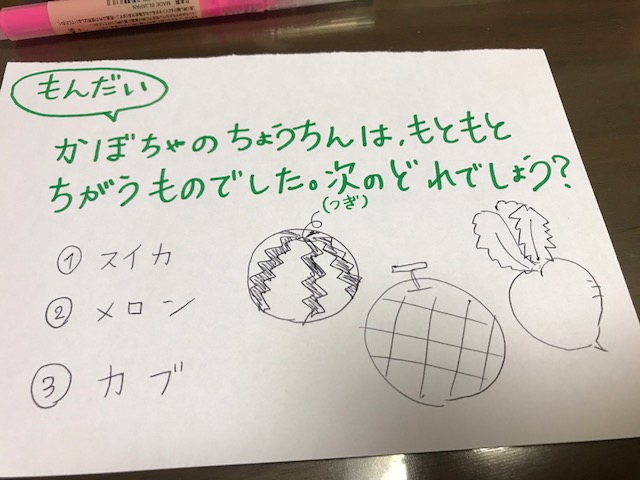 MADE IN JAPAN
もんだい
かぼちゃのちょうちんは、もともと
ちがうものでした。次のどれでしょう?
(つぎ)
① スイカ
② メロン
③ カブ